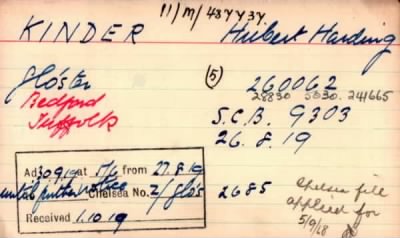 11/M/487737.
KINDER Hubert Harding
Gloster (5) 260062
Bedford 28830 5330. 241665
Suffolk S.C.B. 9303
26.8.19
Ad 30919 at 5/6 from 27.8.19
until further notice Chelsea No. 2/Glos 2685
Chelsea file
applied for
Received 1.10.19
5/9/68